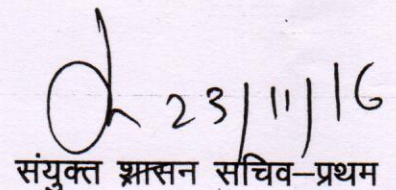 23/11/16
संयुक्त शासन सचिव–प्रथम